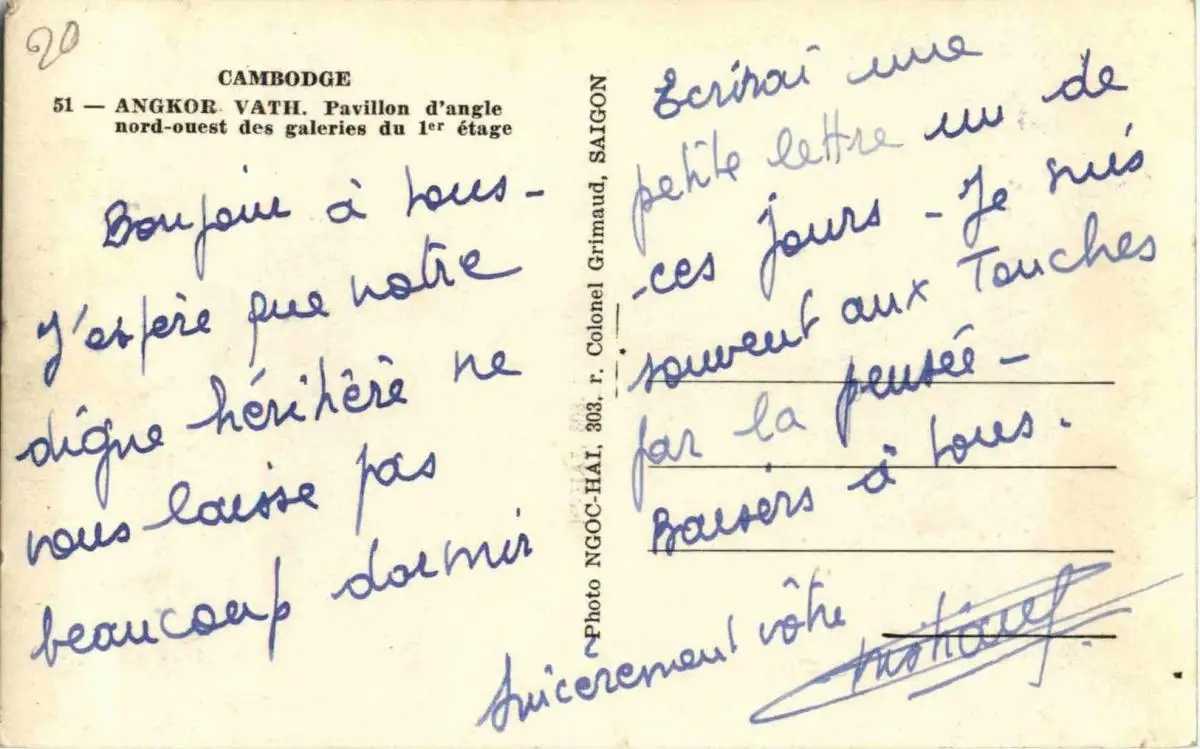 20
CAMBODGE
51 — ANGKOR VATH. Pavillon d'angle
nord-ouest des galeries du 1er étage
Bonjour à tous -
J'espère que notre
digne hérihère ne
vous laisse pas
beaucoup dormir
Photo NGOC-HAI, 303, r. Colonel Grimaud, SAIGON
Ecrirai une
petite lettre un de
ces jours - Je suis
souvent aux Touches
par la pensée -
Baisers à tous.
Sincerement vôtre